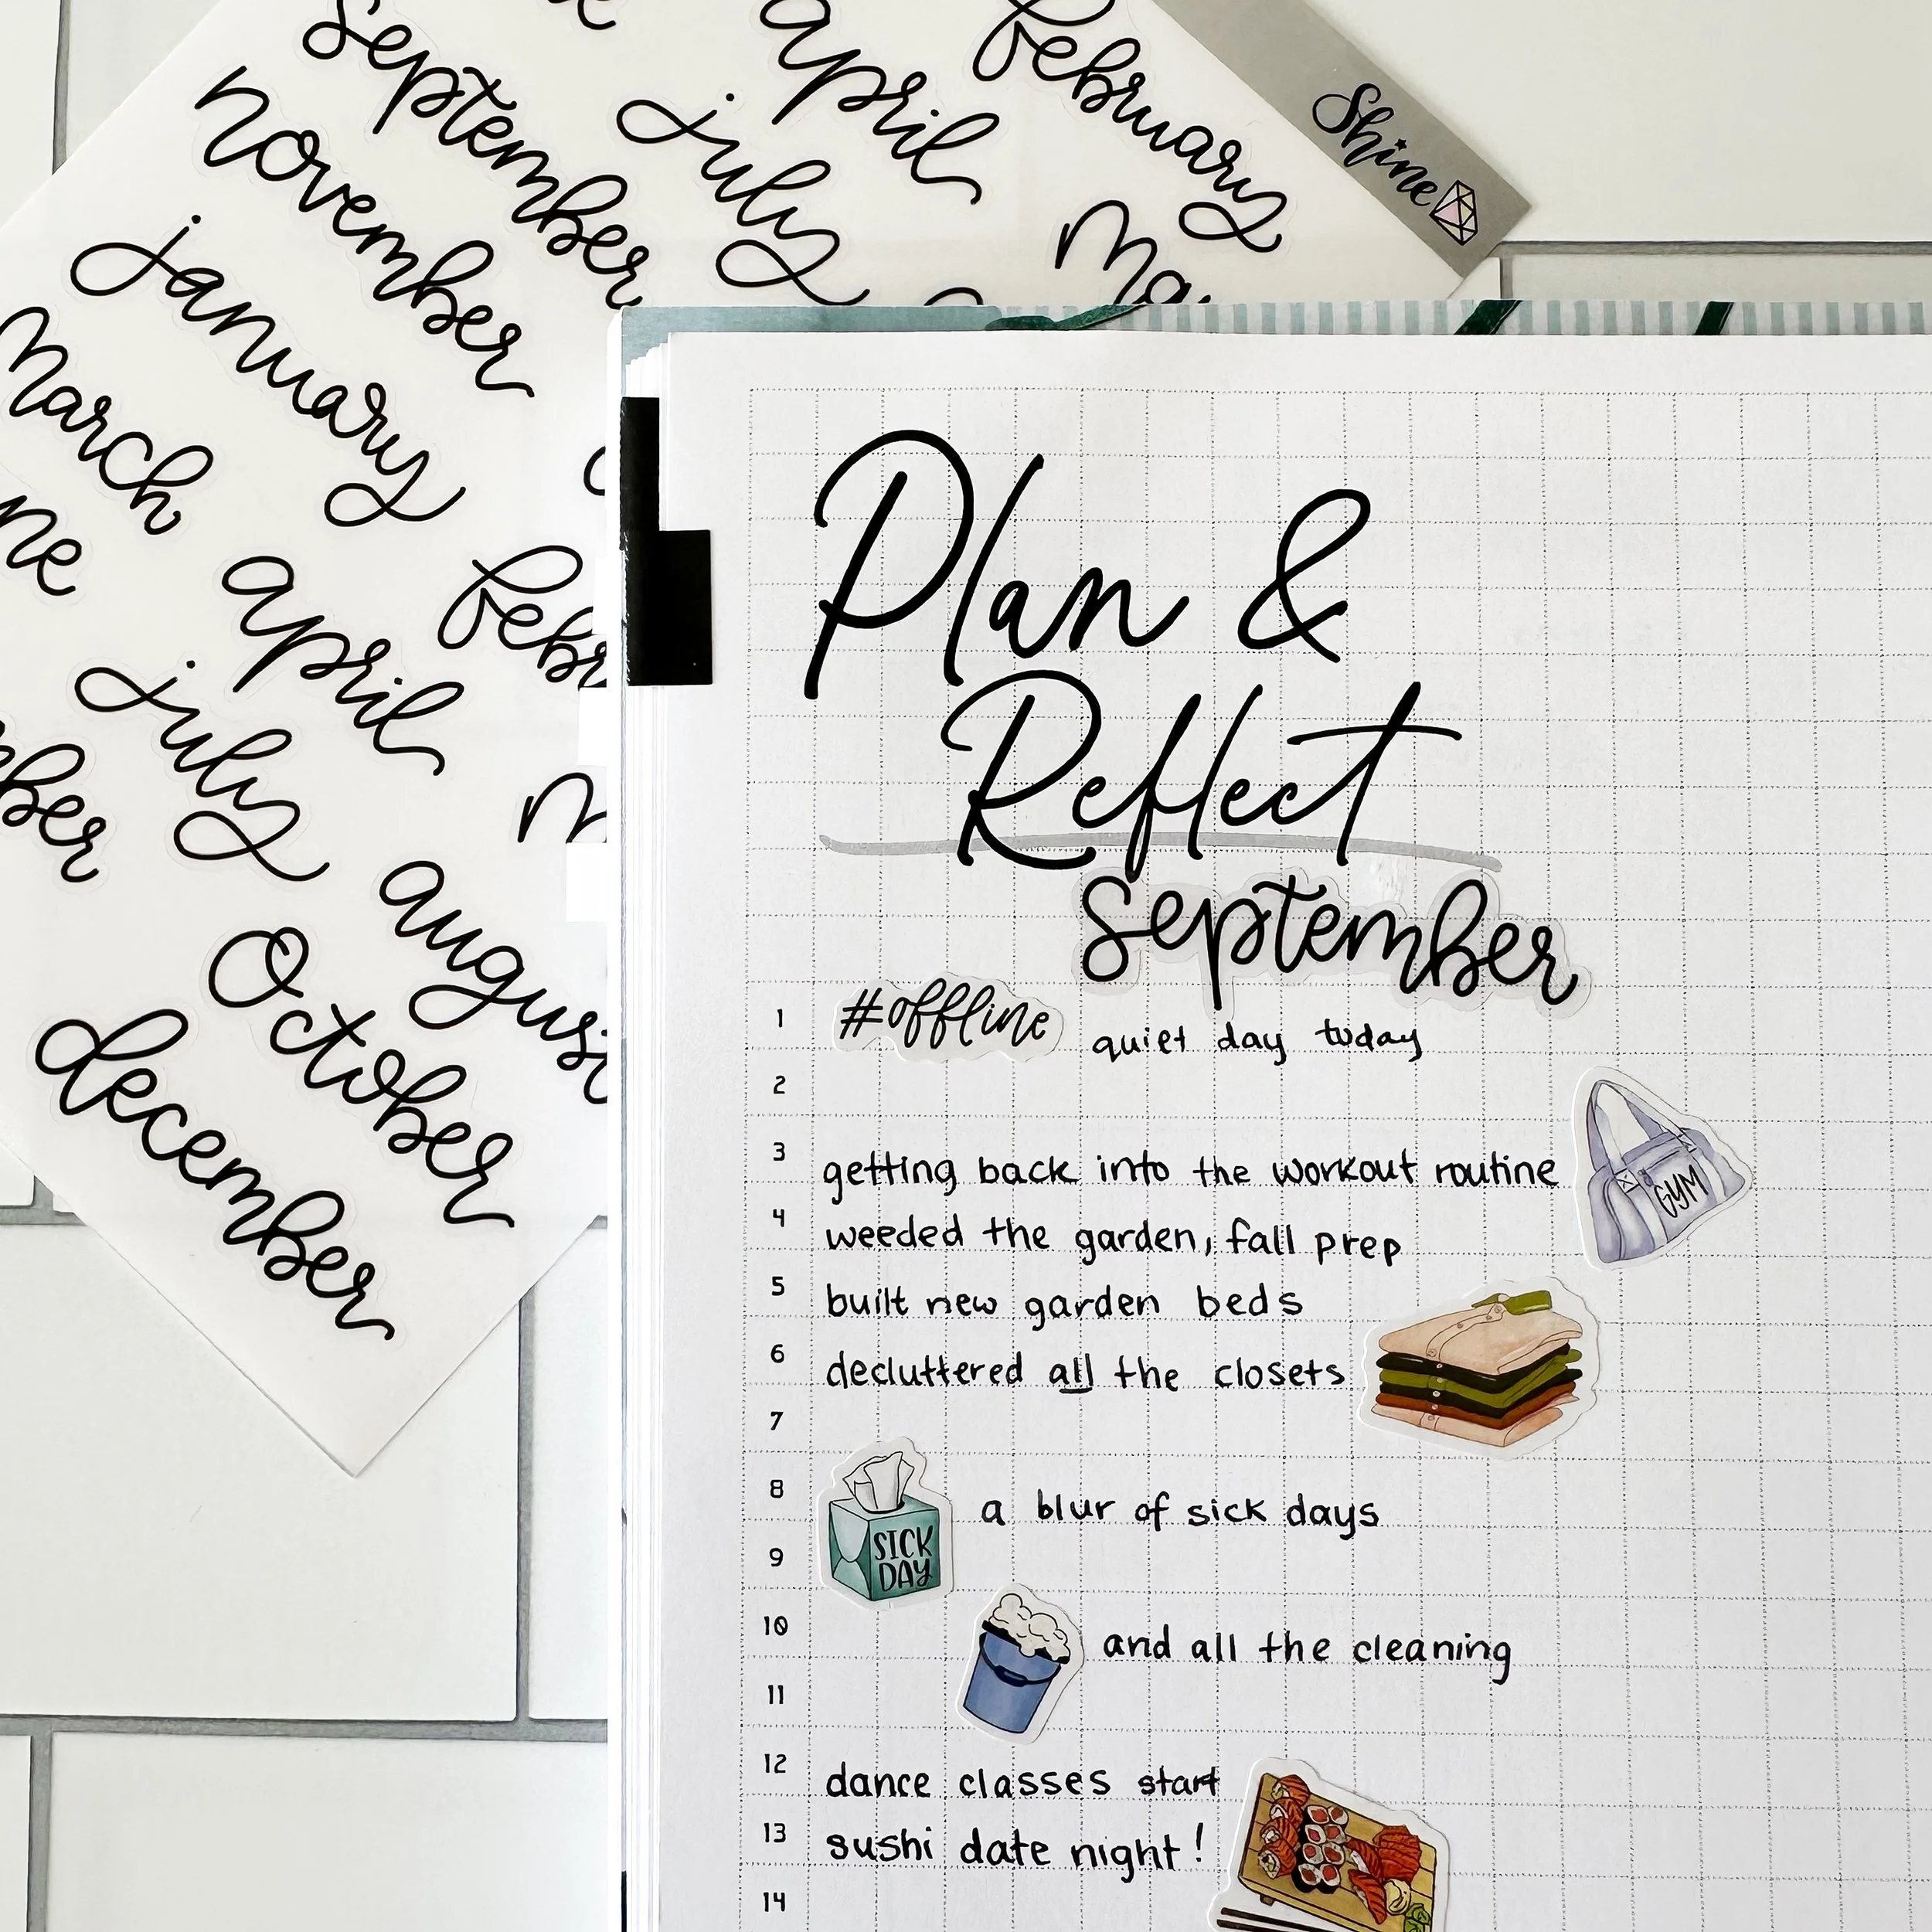 september
april
february
november
july
Ma
january
March
ne
april
febr
july
ber
m
august
October
december
Shine
Plan &
Reflect
september
1 #offline quiet day today
2
3 getting back into the workout routine
GYM
4 weeded the garden, fall prep
5 built new garden beds
6 decluttered all the closets
7
8 a blur of sick days
SICK
DAY
9
10 and all the cleaning
11
12 dance classes start
13 sushi date night!
14